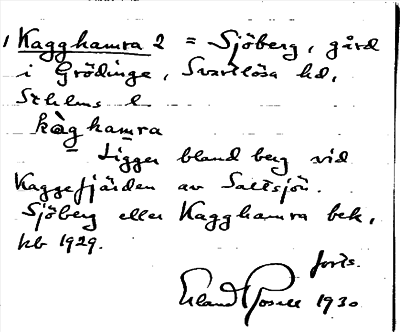 Kagghamra 2 = Sjöberg, gård
i Grödinge, Svartlösa hd,
Sthlms l
kàg hamra
Ligger bland berg vid
Kaggefjärden av Saltsjön.
Sjöberg eller Kagghamra bek.
kb 1929.
forts.
Erland Rosell 1930